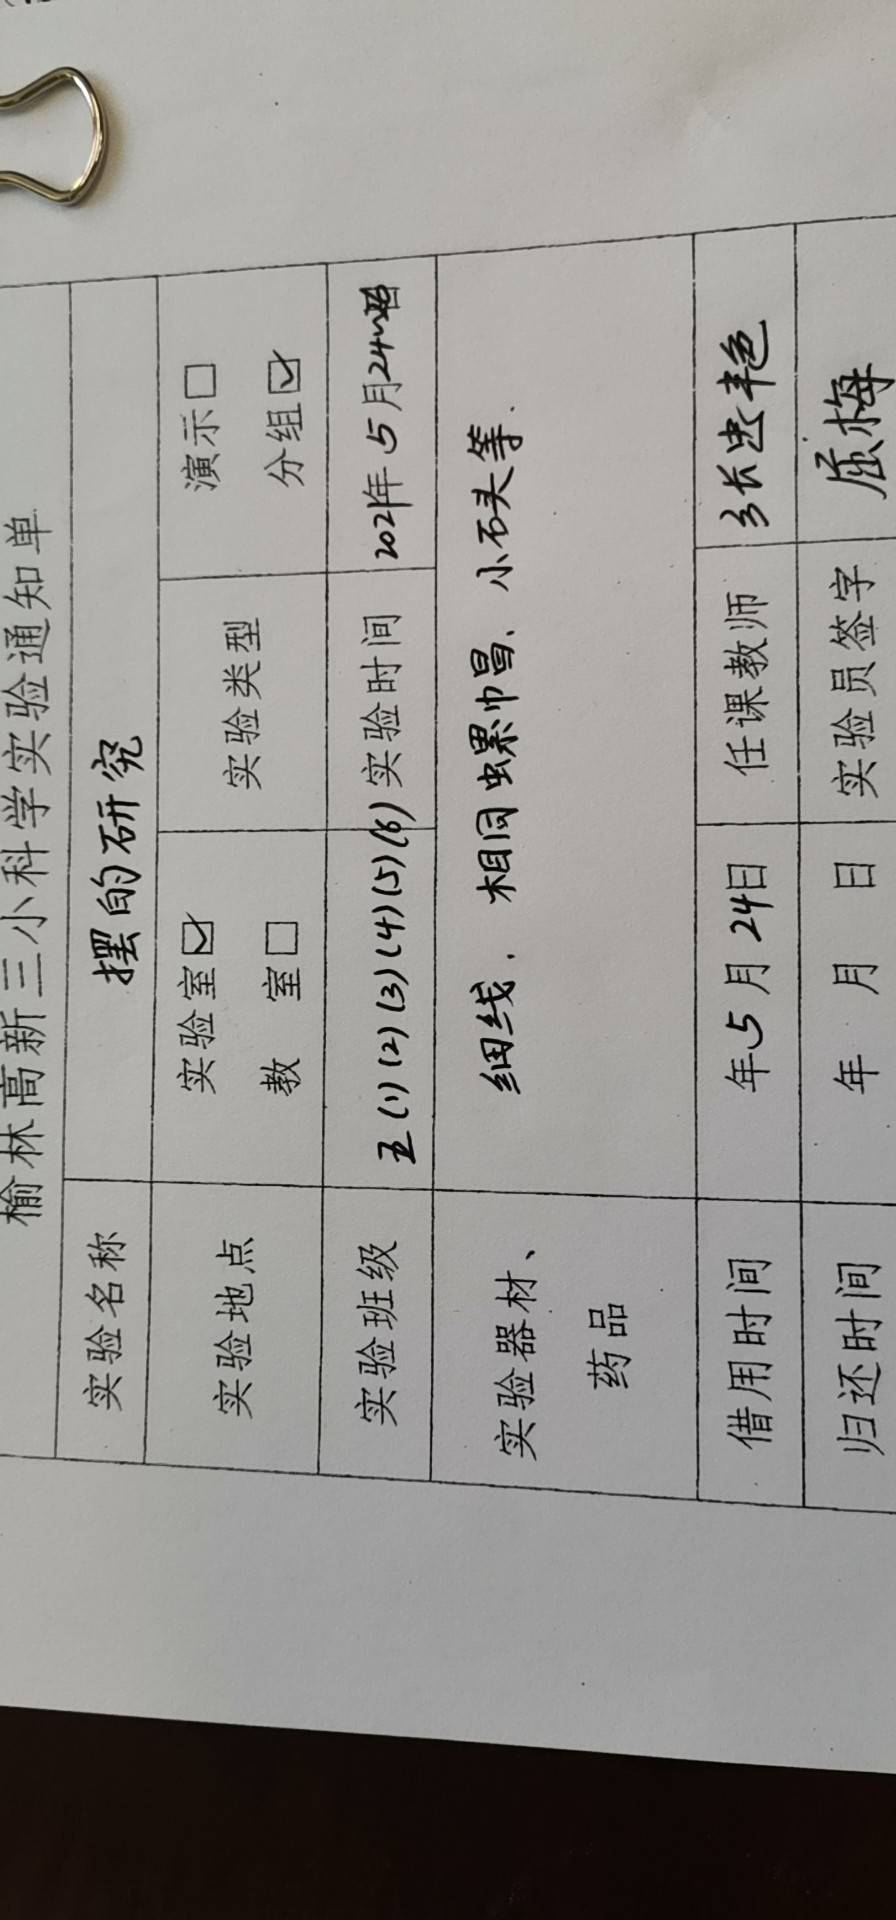 榆林高新三小科学实验通知单
实验名称 摆的研究
实验地点 实验室☑ 教 室□ 实验类型 演示□ 分组☑
实验班级 五(1)(2)(3)(4)(5)(6) 实验时间 2021年5月24
实验器材、药品 细线、相同螺帽、小石头等.
借用时间 年5月24日 任课教师
归还时间 年 月 日 实验员签字 屈梅